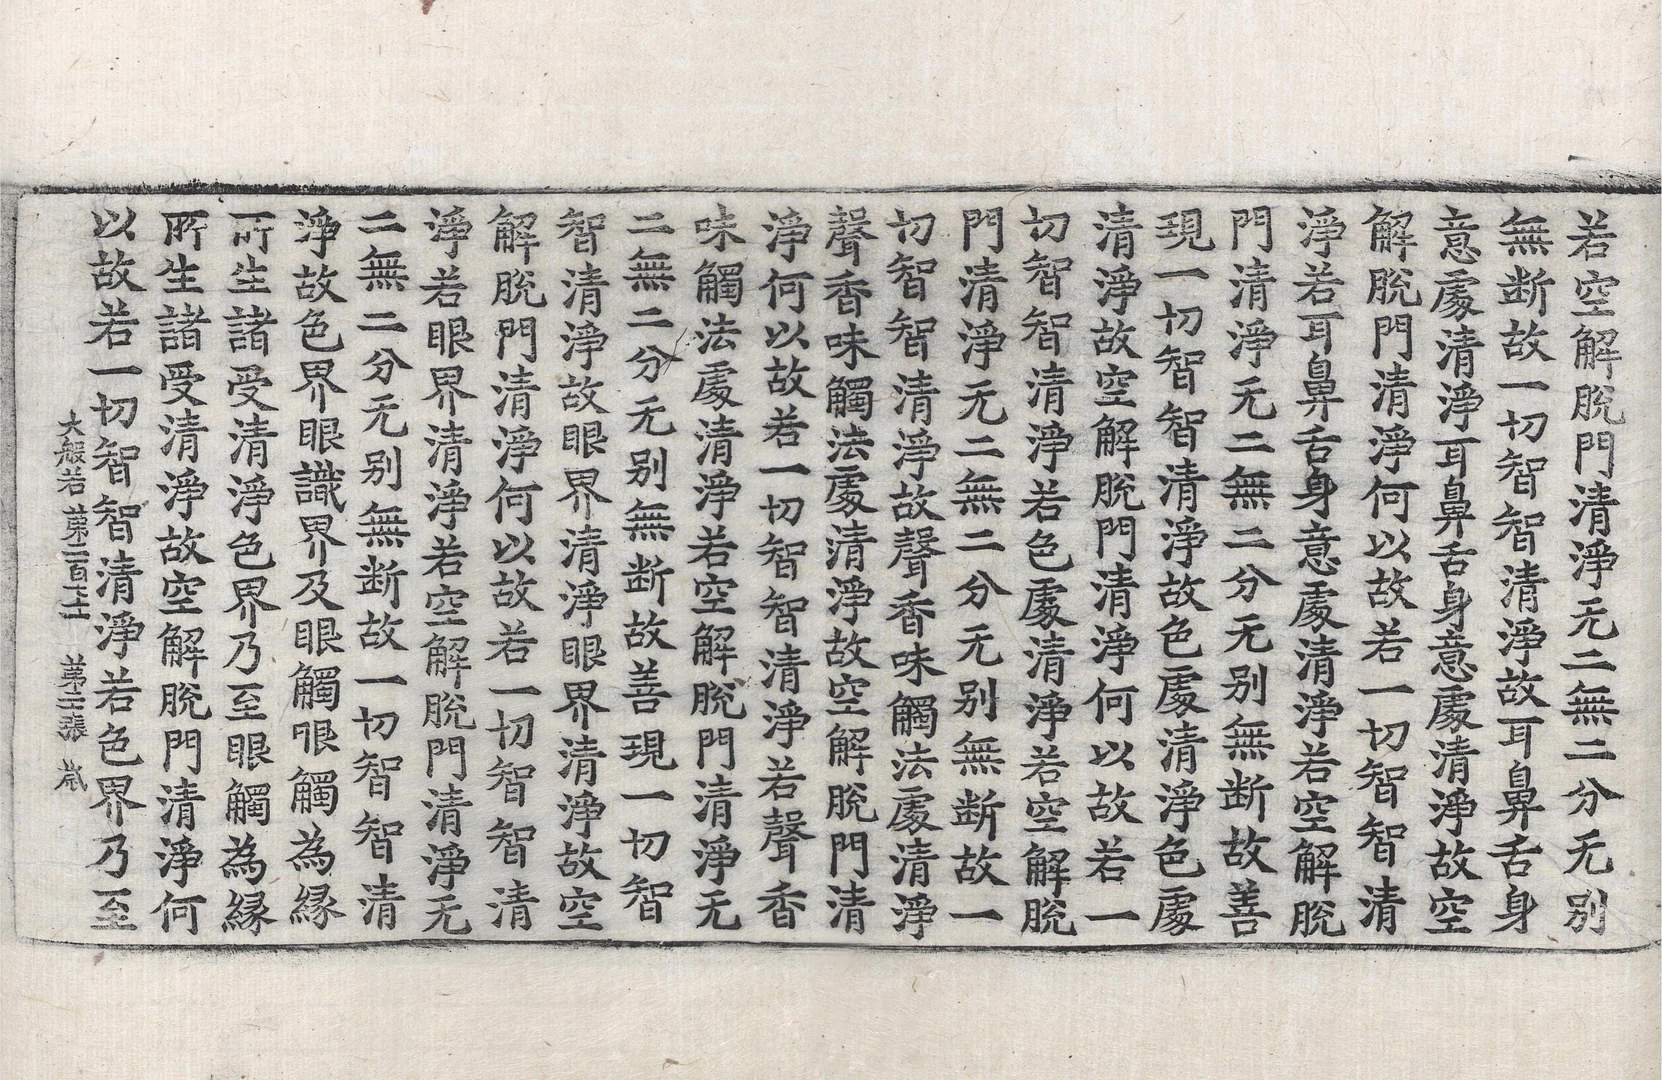 若空解脫門清淨无二無二分无别
無断故一切智智清淨故耳鼻舌身
意處清淨耳鼻舌身意處清淨故空
解脫門清淨何以故若一切智智清
淨若耳鼻舌身意處清淨若空解脫
門清淨无二無二分无别無断故善
現一切智智清淨故色處清淨色處
清淨故空解脫門清淨何以故若一
切智智清淨若色處清淨若空解脫
門清淨无二無二分无别無断故一
切智智清淨故聲香味觸法處清淨
聲香味觸法處清淨故空解脫門清
淨何以故若一切智智清淨若聲香
味觸法處清淨若空解脫門清淨无
二無二分无别無断故善現一切智
智清淨故眼界清淨眼界清淨故空
解脫門清淨何以故若一切智智清
淨若眼界清淨若空解脫門清淨无
二無二分无别無断故一切智智清
淨故色界眼識界及眼觸眼觸為緣
所生諸受清淨色界乃至眼觸為緣
所生諸受清淨故空解脫門清淨何
以故若一切智智清淨若色界乃至
大般若第二百